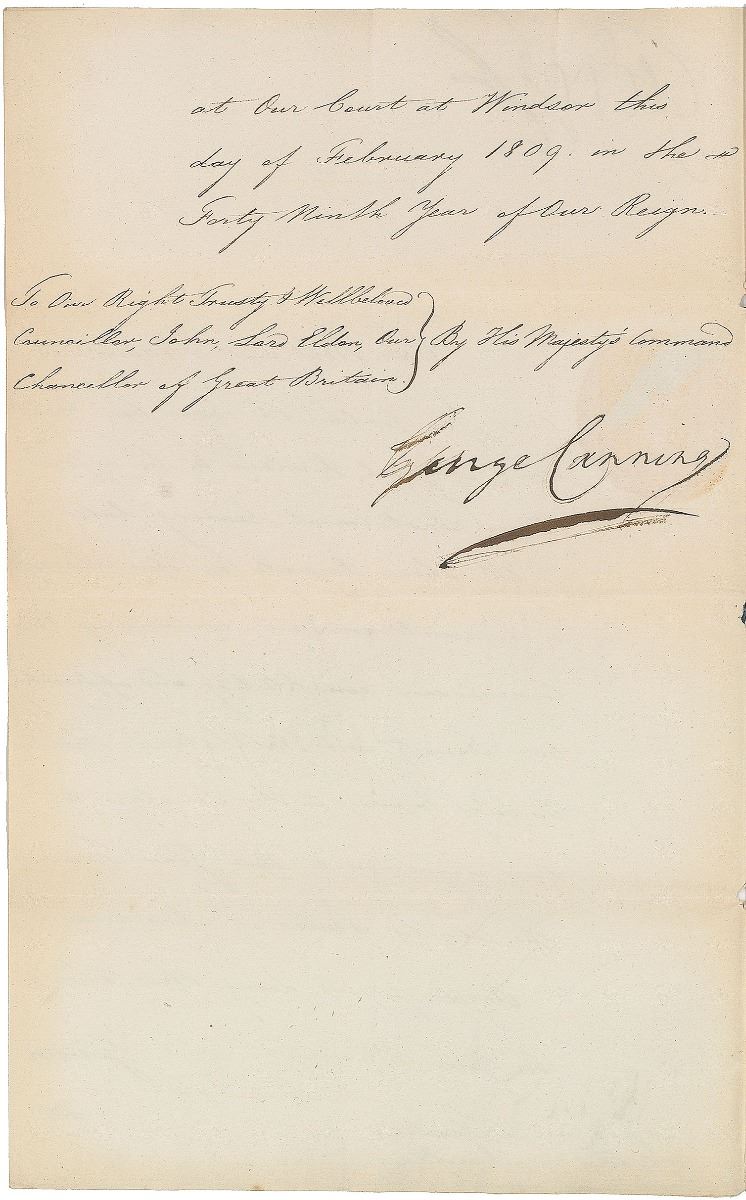 at Our Court at Windsor this
day of February 1809. in the
Forty Ninth Year of Our Reign.
To Our Right Trusty & Wellbeloved
Councillor, John, Lord Eldon, Our
Chancellor of Great Britain.
By His Majesty's Command
George Canning